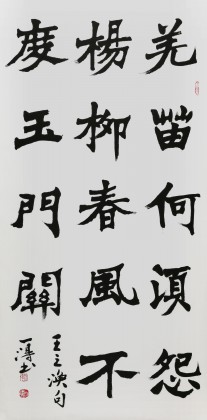 羌笛何須怨
楊柳春風不
度玉門關
王之渙句